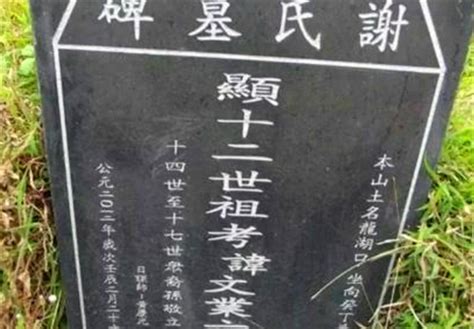 謝氏墓碑
本山土名龍湖口
坐向癸丁
顯十二世祖考諱文業
十四世至十七世眾裔孫敬立
日課師：黃
公元二〇一二年歲次壬辰二月二十